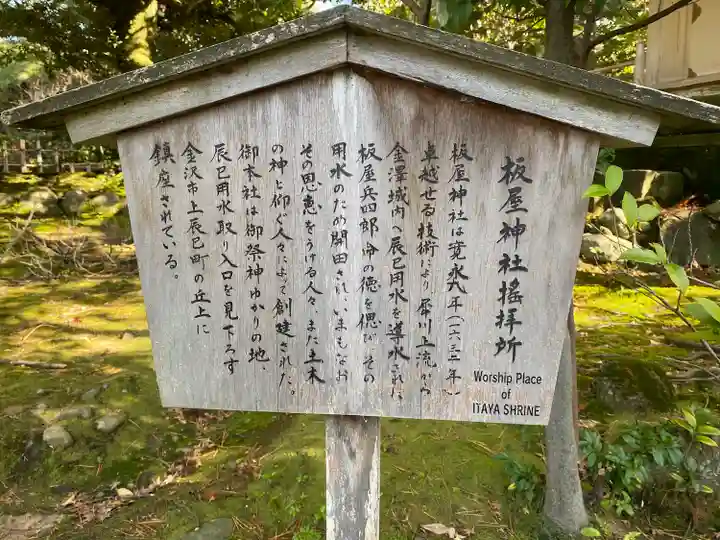 板屋神社遙拝所
Worship Place
of
ITAYA SHRINE
板屋神社は寛永九年(一六三二年)
卓越せる技術により犀川上流から
金澤城内へ辰巳用水を導水された
板屋兵四郎命の徳を偲び、その
用水のため開田され、いまもなお
その恩恵をうける人々、また土木
の神と仰ぐ人々によって創建された。
御本社は御祭神ゆかりの地、
辰巳用水取り入口を見下ろす
金沢市上辰巳町の丘上に
鎮座されている。